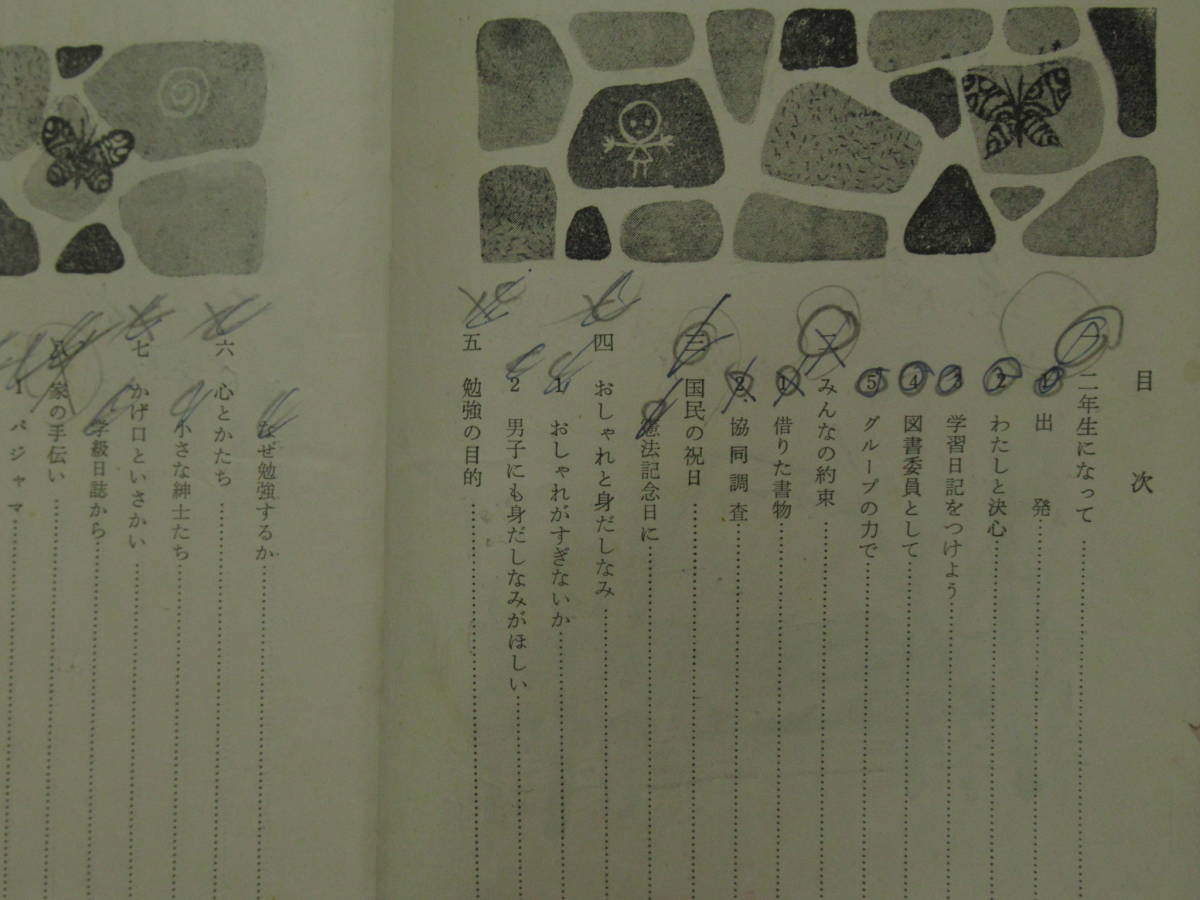 目次
一 二年生になって
1 出発
2 わたしと決心
3 学習日記をつけよう
4 図書委員として
5 グループの力で
二 みんなの約束
1 借りた書物
2 協同調査
三 国民の祝日
憲法記念日に
四 おしゃれと身だしなみ
1 おしゃれがすぎないか
2 男子にも身だしなみがほしい
五 勉強の目的
なぜ勉強するか
六 心とかたち
小さな紳士たち
七 かげ口といさかい
学級日誌から
八 家の手伝い
1 パジャマ